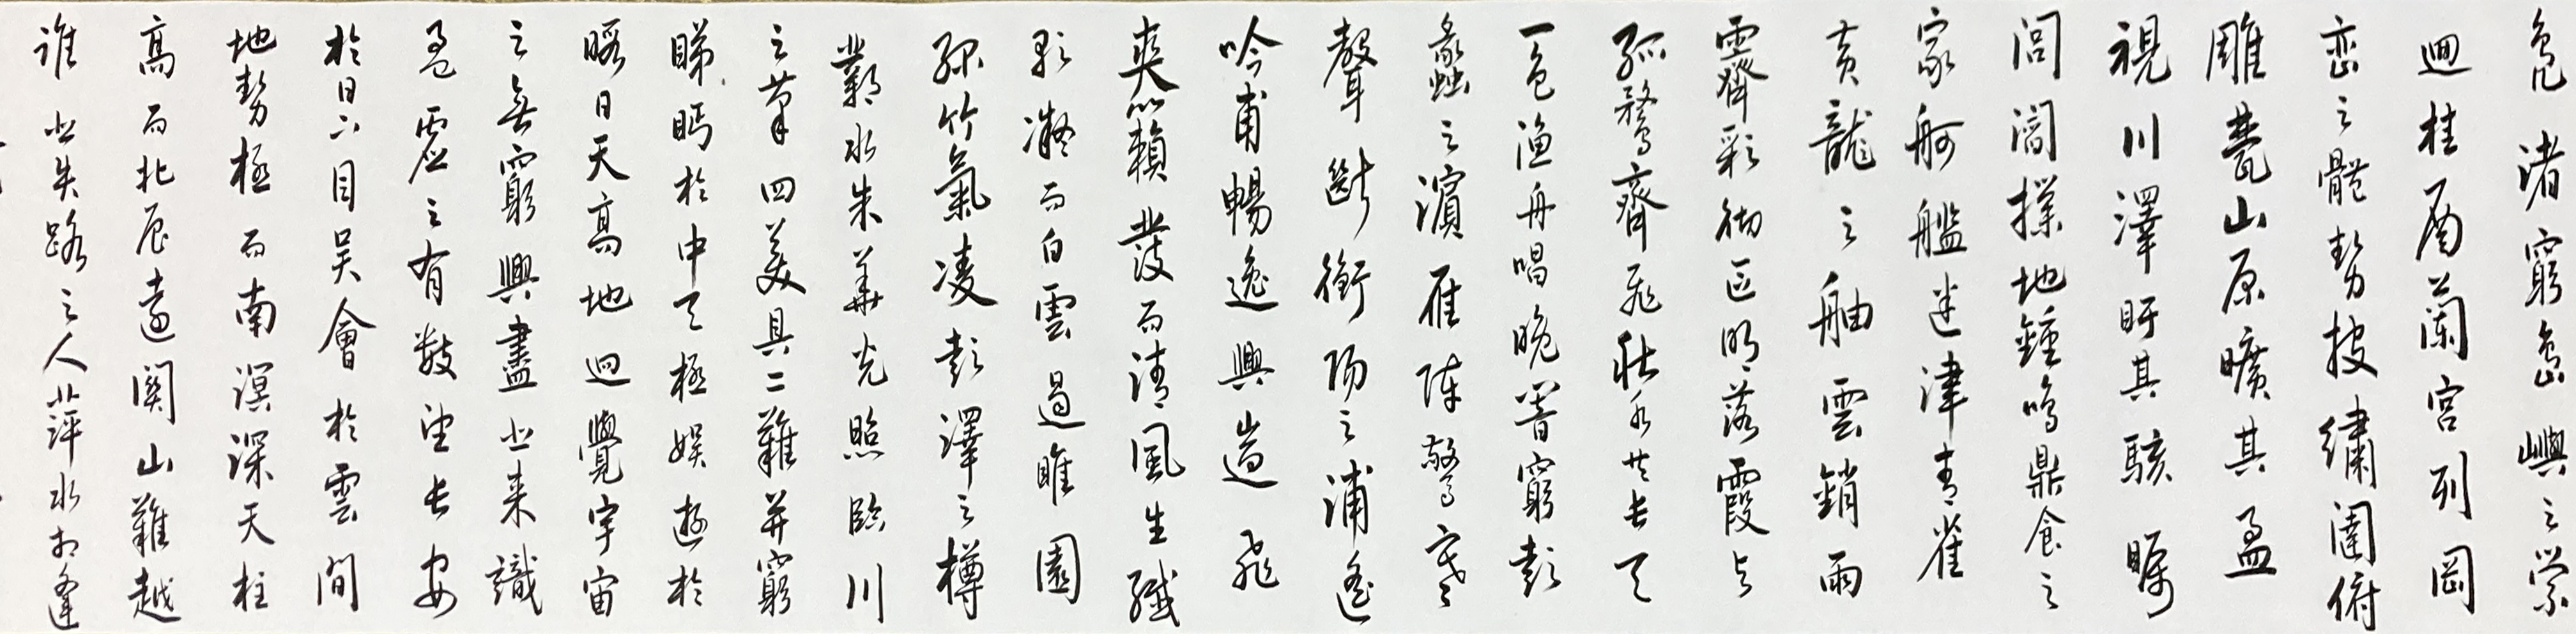 鳧渚窮島嶼之縈
迴桂殿蘭宮列岡
巒之體勢披繡闥俯
雕甍山原曠其盈
視川澤盱其駭矚
閭閻撲地鍾鳴鼎食之
家舸艦迷津青雀
黃龍之舳雲銷雨
霽彩徹區明落霞與
孤鶩齊飛秋水共長天
一色漁舟唱晚響窮彭
蠡之濱雁陣驚寒
聲斷衡陽之浦遙
吟甫暢逸興遄飛
爽籟發而清風生纖
歌凝而白雲遏睢園
綠竹氣凌彭澤之樽
鄴水朱華光照臨川
之筆四美具二難并窮
睇眄於中天極娛遊於
暇日天高地迥覺宇宙
之無窮興盡悲來識
盈虛之有數望長安
於日下目吳會於雲間
地勢極而南溟深天柱
高而北辰遠關山難越
誰悲失路之人萍水相逢